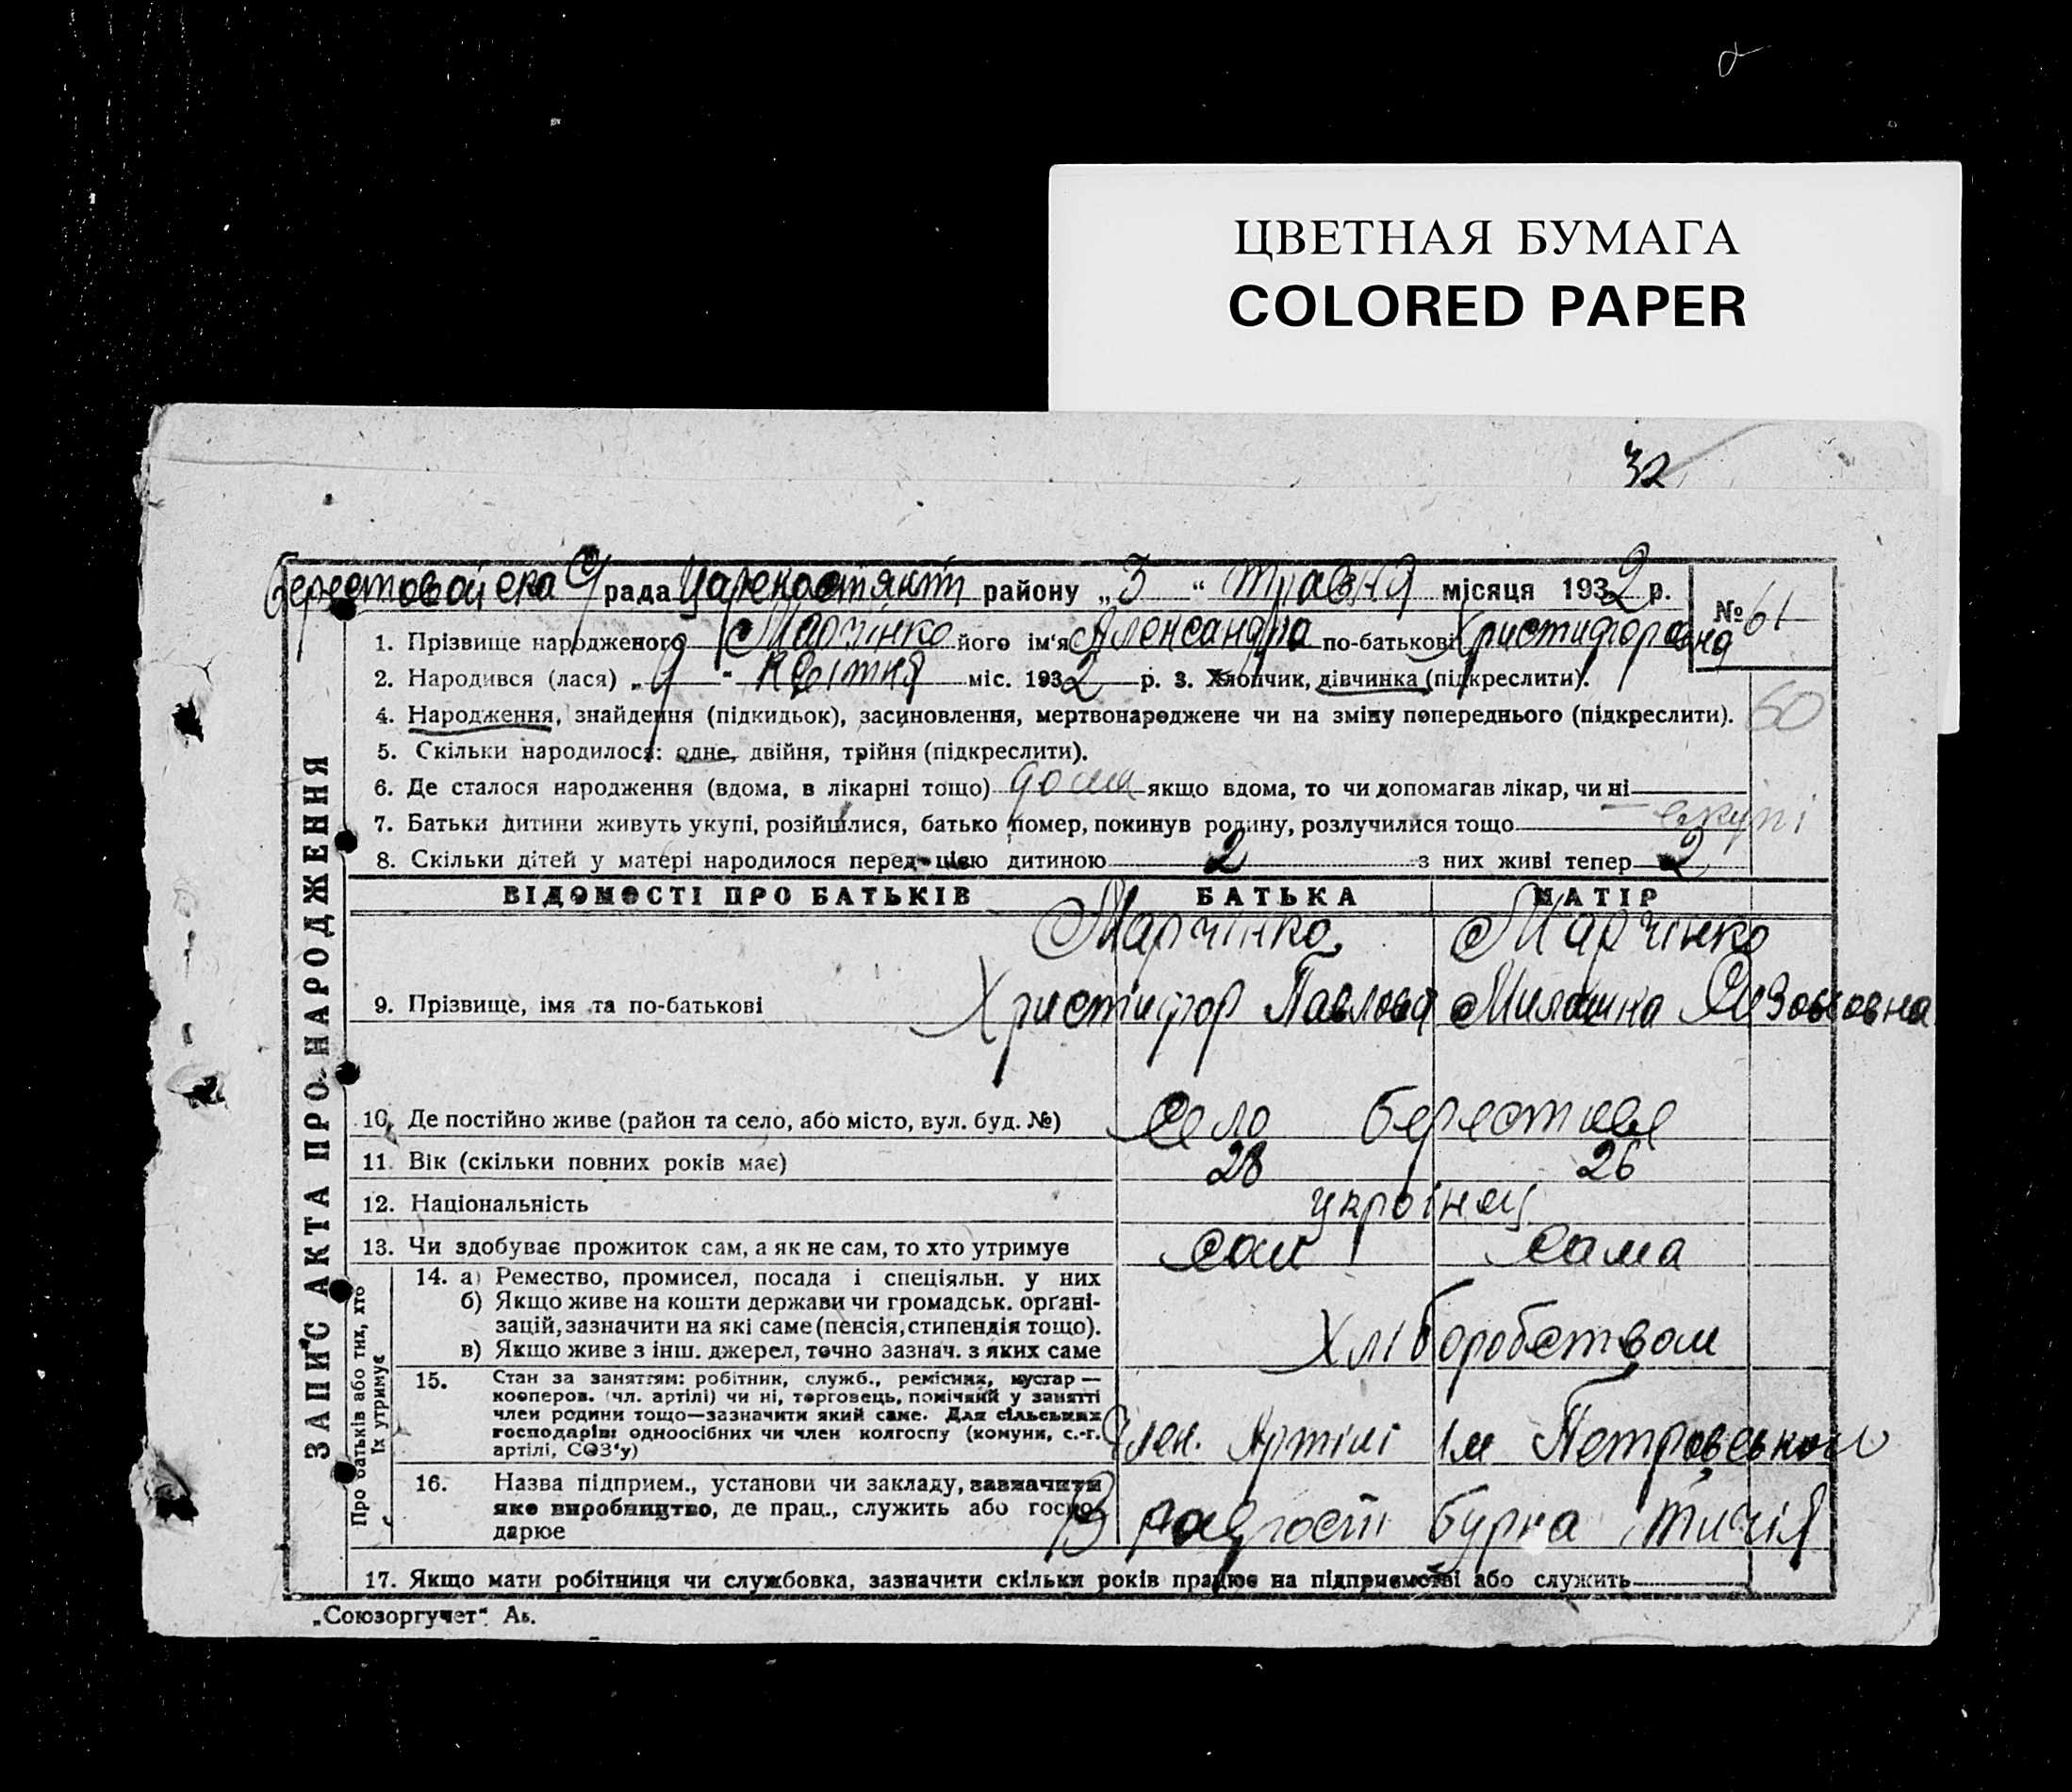 ЦВЕТНАЯ БУМАГА
COLORED PAPER
32
рада району „3“ травня місяця 1932 р.
№ 61
1. Прізвище народженого Марчінко його ім'я Александра по-батькові Христифоровна
2. Народився (лася) „9“ квітня міс. 1932 р. 3. Хлопчик, дівчинка (підкреслити).
60
4. Народження, знайдення (підкидьок), засиновлення, мертвонароджене чи на зміну попереднього (підкреслити).
5. Скільки народилося: одне, двійня, трійня (підкреслити).
6. Де сталося народження (вдома, в лікарні тощо) дома якщо вдома, то чи допомагав лікар, чи ні
7. Батьки дитини живуть укупі, розійшлися, батько помер, покинув родину, розлучилися тощо вкупі
8. Скільки дітей у матері народилося перед цією дитиною 2 з них живі тепер 2
ЗАПИС АКТА ПРО НАРОДЖЕННЯ
ВІДОМОСТІ ПРО БАТЬКІВ БАТЬКА МАТІР
Марчінко Марчінко
9. Прізвище, імя та по-батькові Христифор Павлова
10. Де постійно живе (район та село, або місто, вул. буд. №) село Берестове
11. Вік (скільки повних років має) 28 26
12. Національність україней
13. Чи здобуває прожиток сам, а як не сам, то хто утримує сам сама
Про батьків або тих, хто їх утримує
14. а) Ремество, промисел, посада і спеціяльн. у них
б) Якщо живе на кошти держави чи громадськ. орґані-
зацій, зазначити на які саме (пенсія, стипендія тощо).
в) Якщо живе з інш. джерел, точно зазнач. з яких саме
Хліборобством
15. Стан за заняттям: робітник, служб., ремісник, кустар—
кооперов. (чл. артілі) чи ні, торговець, помічний у занятті
член родини тощо—зазначити який саме. Для сільських
господарів: одноосібних чи член колгоспу (комуни, с.-г.
артілі, СОЗ'у)
Член. Артілі Ім Петровського
16. Назва підприєм., установи чи закладу, зазначити
яке виробництво, де прац., служить або госпо-
дарює
17. Якщо мати робітниця чи службовка, зазначити скільки років працює на підприємстві або служить
„Союзоргучет“. Ав.